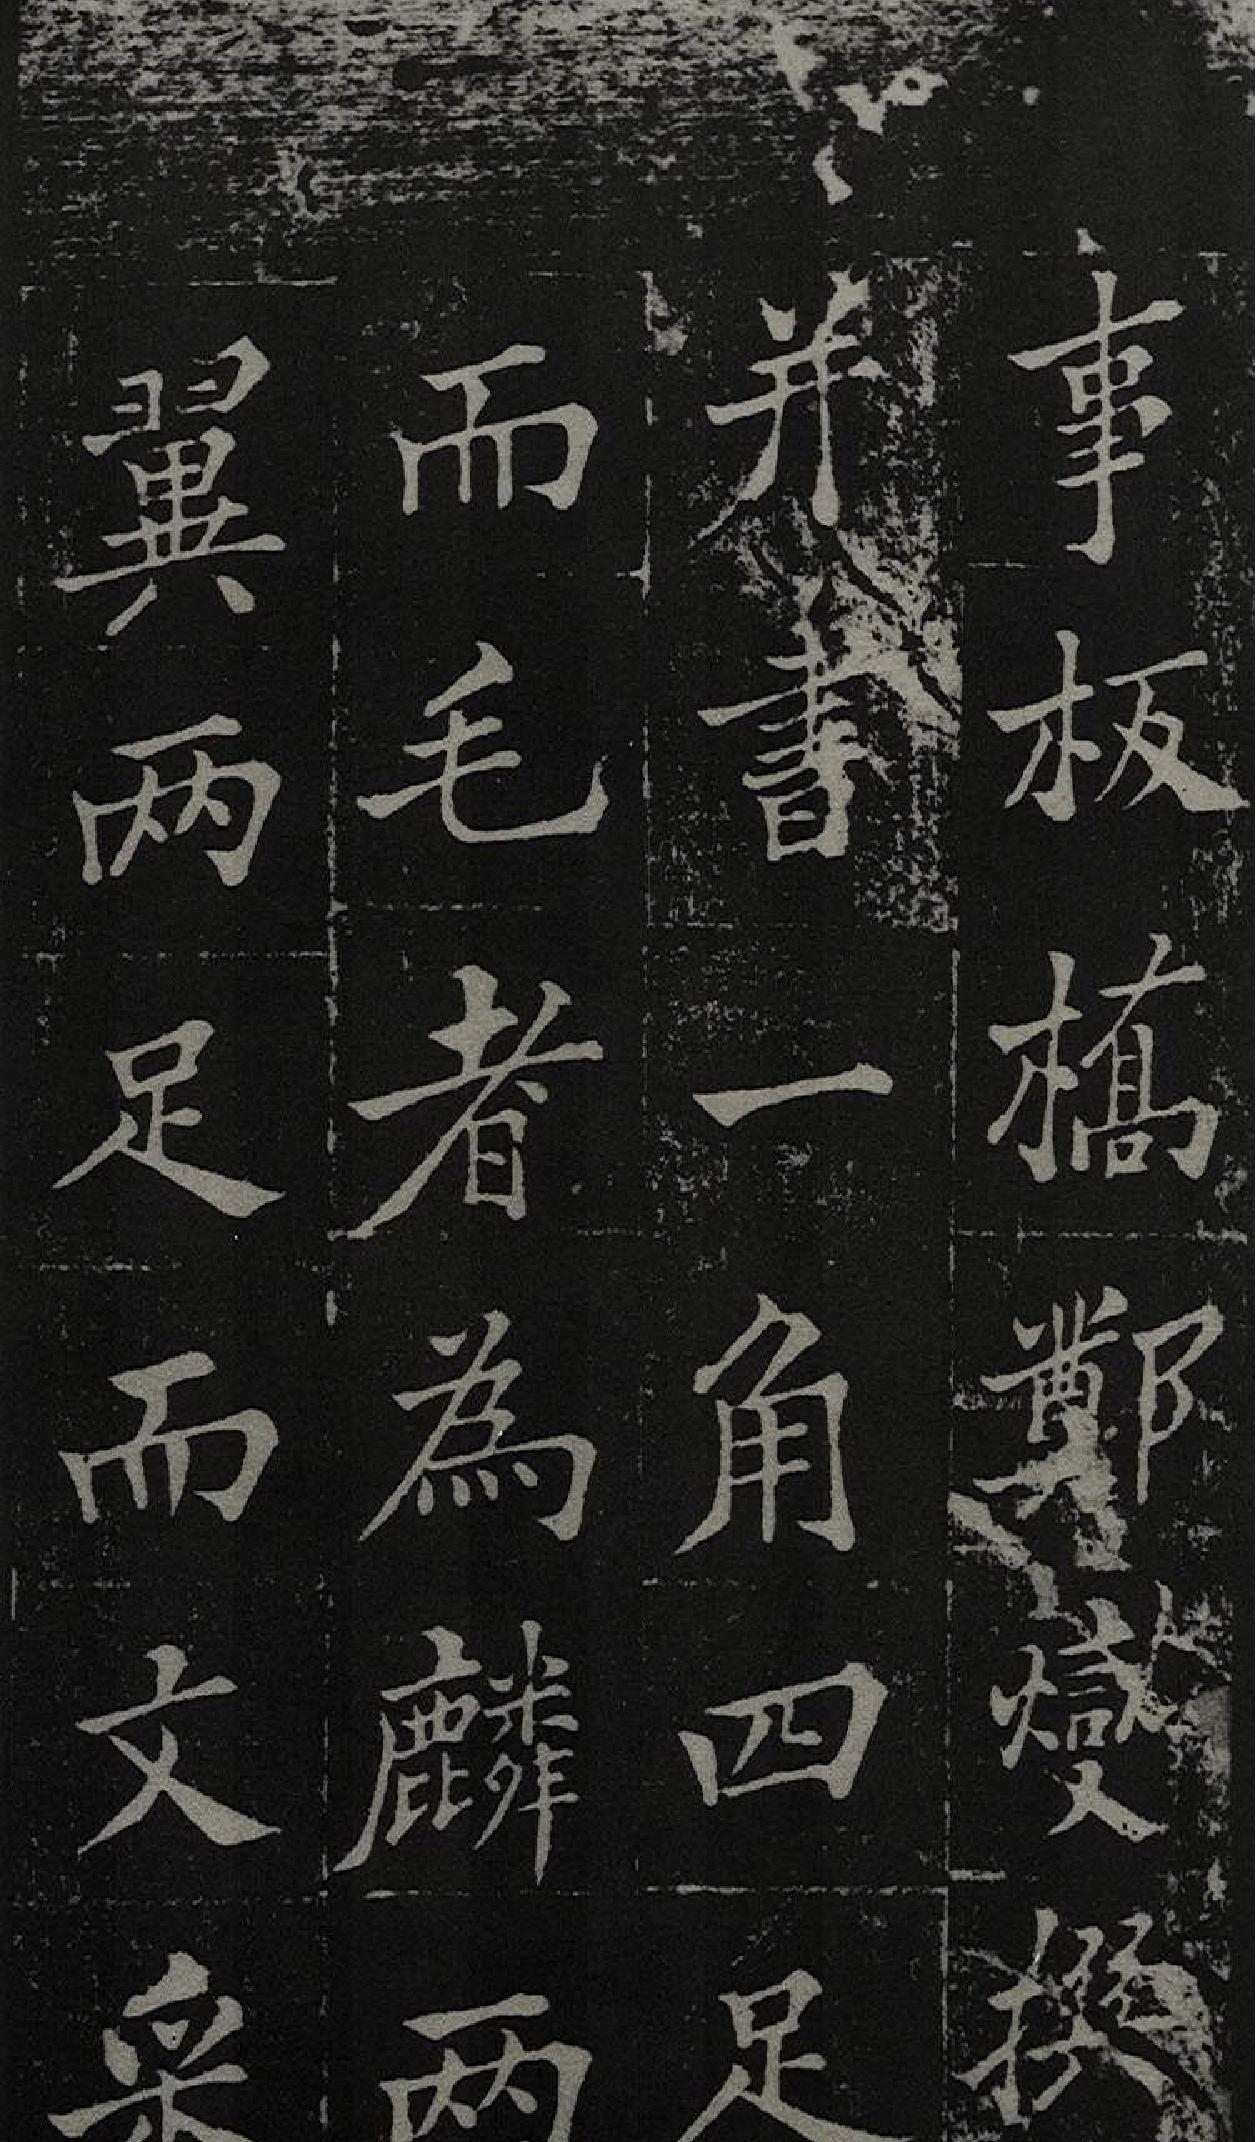 事板橋鄭燮撰
并書一角四足
而毛者為麟兩
翼兩足而文采